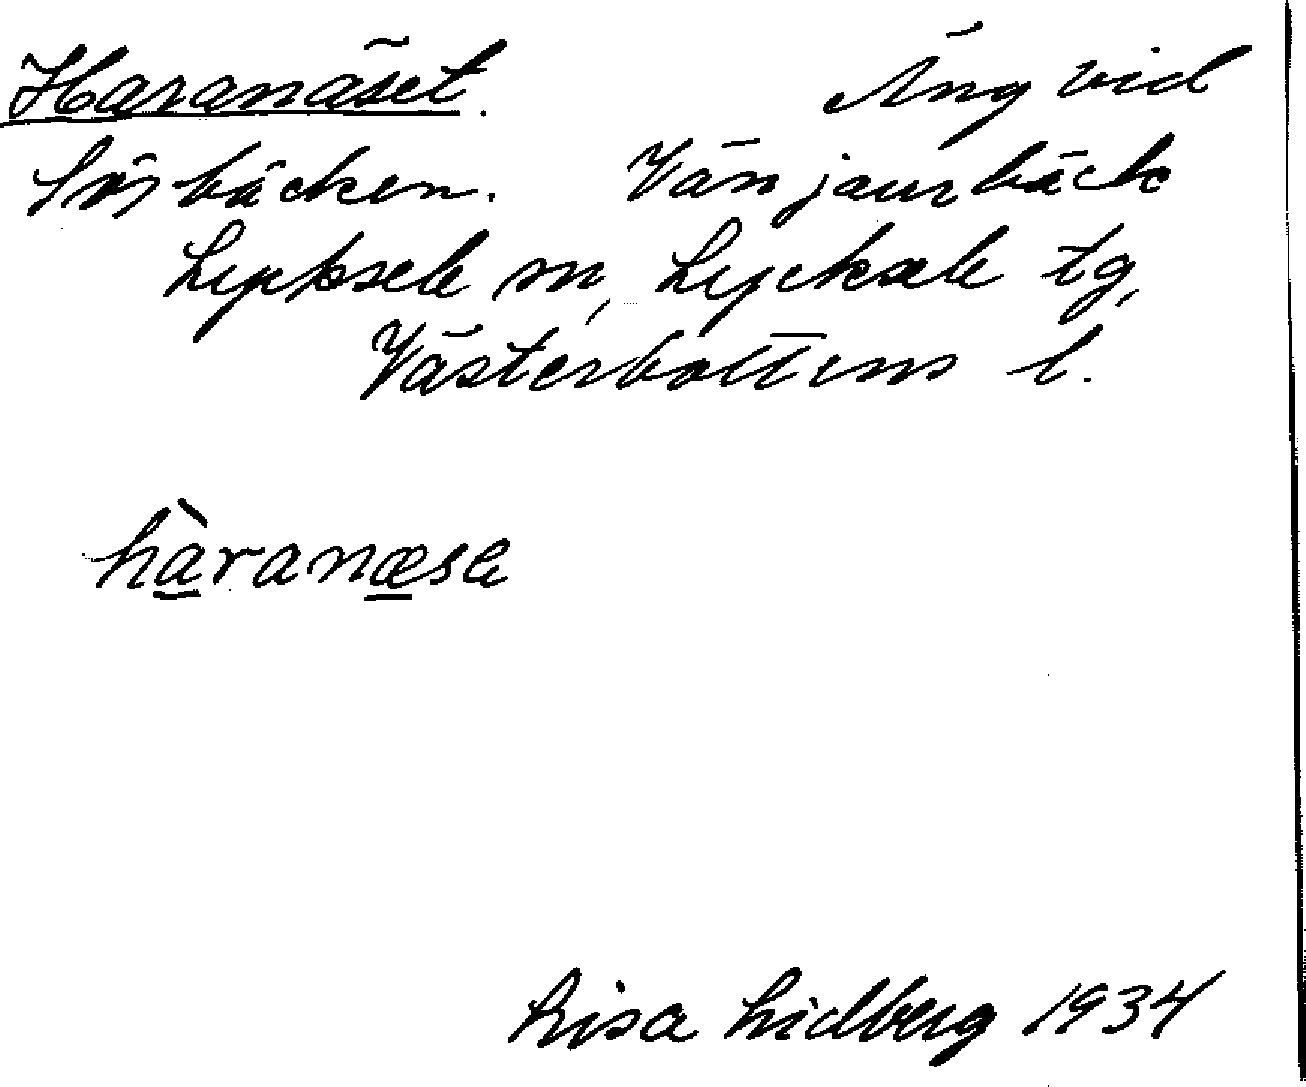 Haranäset. Äng vid
Sörbäcken. Vänjaurbäck
Lycksele sn, Lycksele tg,
Västerbottens l.
hàranæsɛ
Lisa Lidberg 1934